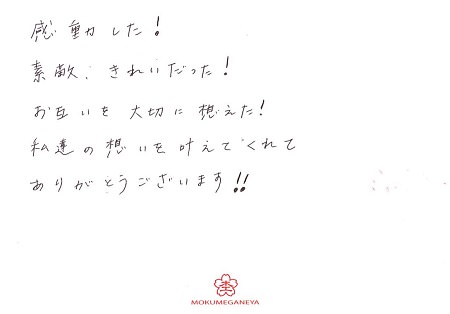 感動した!
素敵、きれいだった!
お互いを大切に想えた!
私達の想いを叶えてくれて
ありがとうございます!!
MOKUMEGANEYA